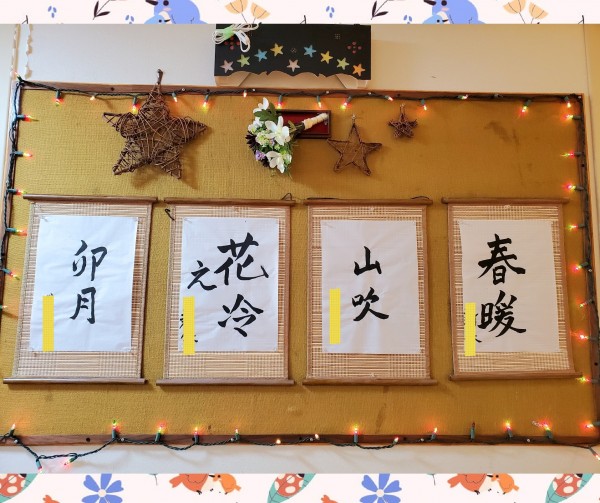 春暖
山吹
花冷
え
卯月